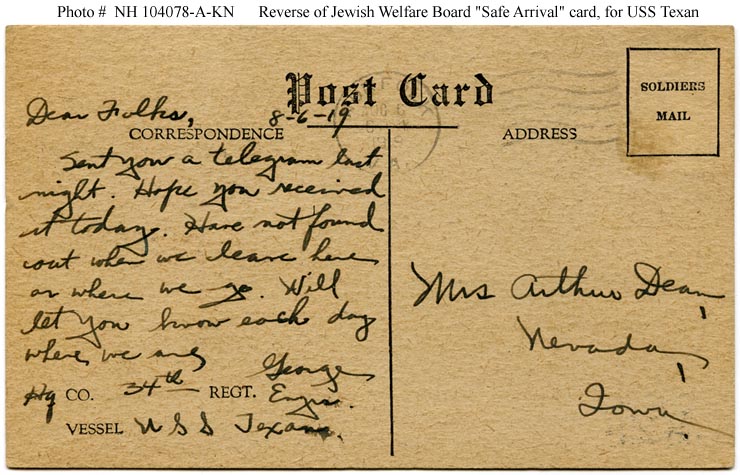 Photo # NH 104078-A-KN Reverse of Jewish Welfare Board "Safe Arrival" card, for USS Texan
Post Card
SOLDIERS
MAIL
Dear Folks, 8-6-19
CORRESPONDENCE
ADDRESS
Sent you a telegram last
night. Hope you received
it today. Have not found
out when we leave here
or where we go. Will
let you know each day
where we are,
George
Hq CO. 34th REGT. Engrs.
VESSEL U S S Texan.
Mrs Arthur Dean,
Nevada,
Iowa